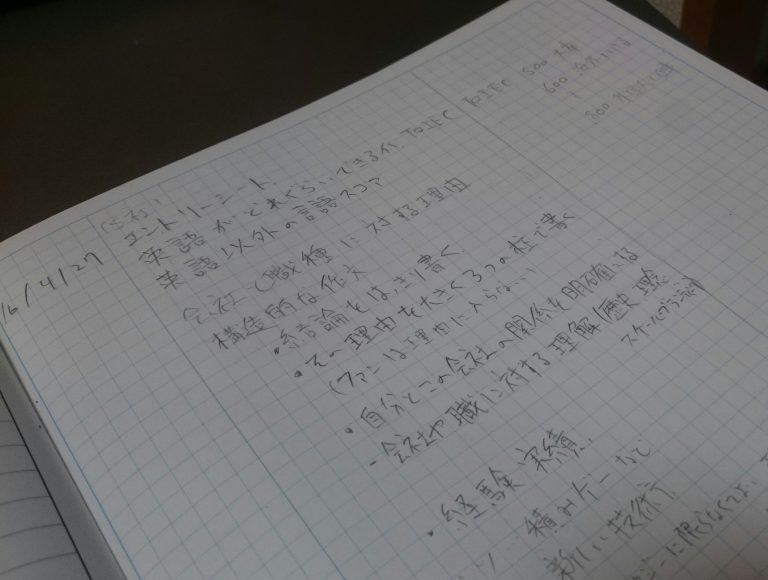 6/4/27
エントリーシート
英語がどれくらいできるか、TOIEC TOIEC 500
600
800
英語以外の言語スコア
会社と職種に対する理由
構造的な作文
・結論をはっきり書く
・その理由を大きく3つの柱で書く
(ファンは理由に入らない)
・自分とこの会社の関係を明確にする
- 会社や職に対する理解(歴史、理念
スケール、ブランド
・経験、実績
積みゲーなど
新しい技術
に限らなくてよい